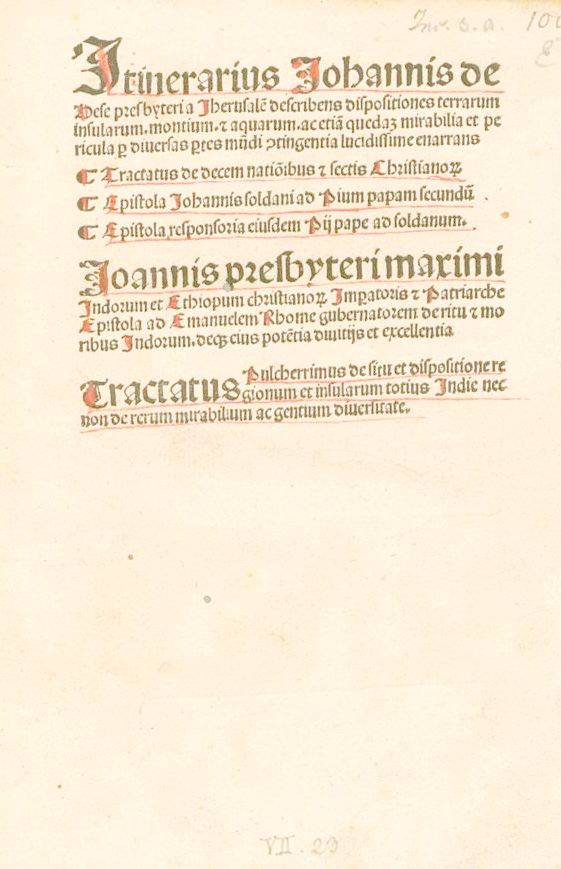 Inc. s. a. 100
Itinerarius Johannis de
Hese presbyteri a Jherusalē describens dispositiones terrarum
insularum. montium. ⁊ aquarum. ac etiā quedaꝫ mirabilia et pe
ricula ꝑ diuersas ꝑtes mūdi ↄtingentia lucidissime enarrans
¶ Tractatus de decem natiōibus ⁊ sectis Christianoꝝ
¶ Epistola Johannis soldani ad Pium papam secundū
¶ Epistola responsoria eiusdem Pij pape ad soldanum.
Joannis presbyteri maximi
Indorum et Ethiopum christianoꝝ Imꝑatoris ⁊ Patriarche
Epistola ad Emanuelem Rhome gubernatorem de ritu ⁊ mo
ribus Indorum. deqꝫ eius potētia diuitijs et excellentia
Tractatus Pulcherrimus de situ et dispositione re
gionum et insularum totius Indie nec
non de rerum mirabilium ac gentium diuersitate.
VII. 23